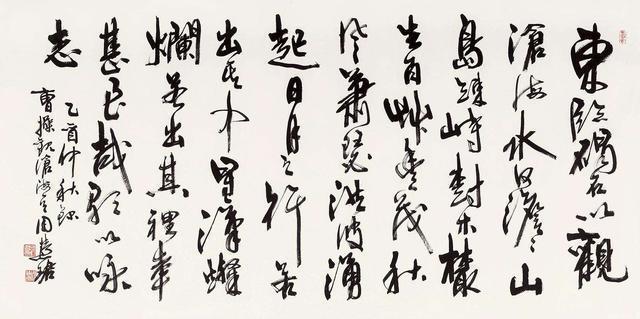 東臨碣石以觀
滄海水何澹〻山
島竦峙樹木叢
生百艸豐茂秋
風蕭瑟洪波湧
起日月之行若
出其中星漢燦
爛若出其裡幸
甚至哉歌以詠
志
乙酉仲秋錄
曹操觀滄海周慧珺